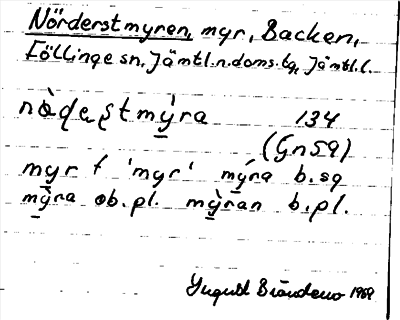 Nörderstmyren, myr, Backen,
Föllinge sn, Jämtl.n.doms.tg, Jämtl.l.
nòdeʂtmỳ̠ra 134
(Gn59)
myr f 'myr' mý̠ra b.sg
mỳ̠ra ob.pl. mỳ̠ran b.pl.
1969